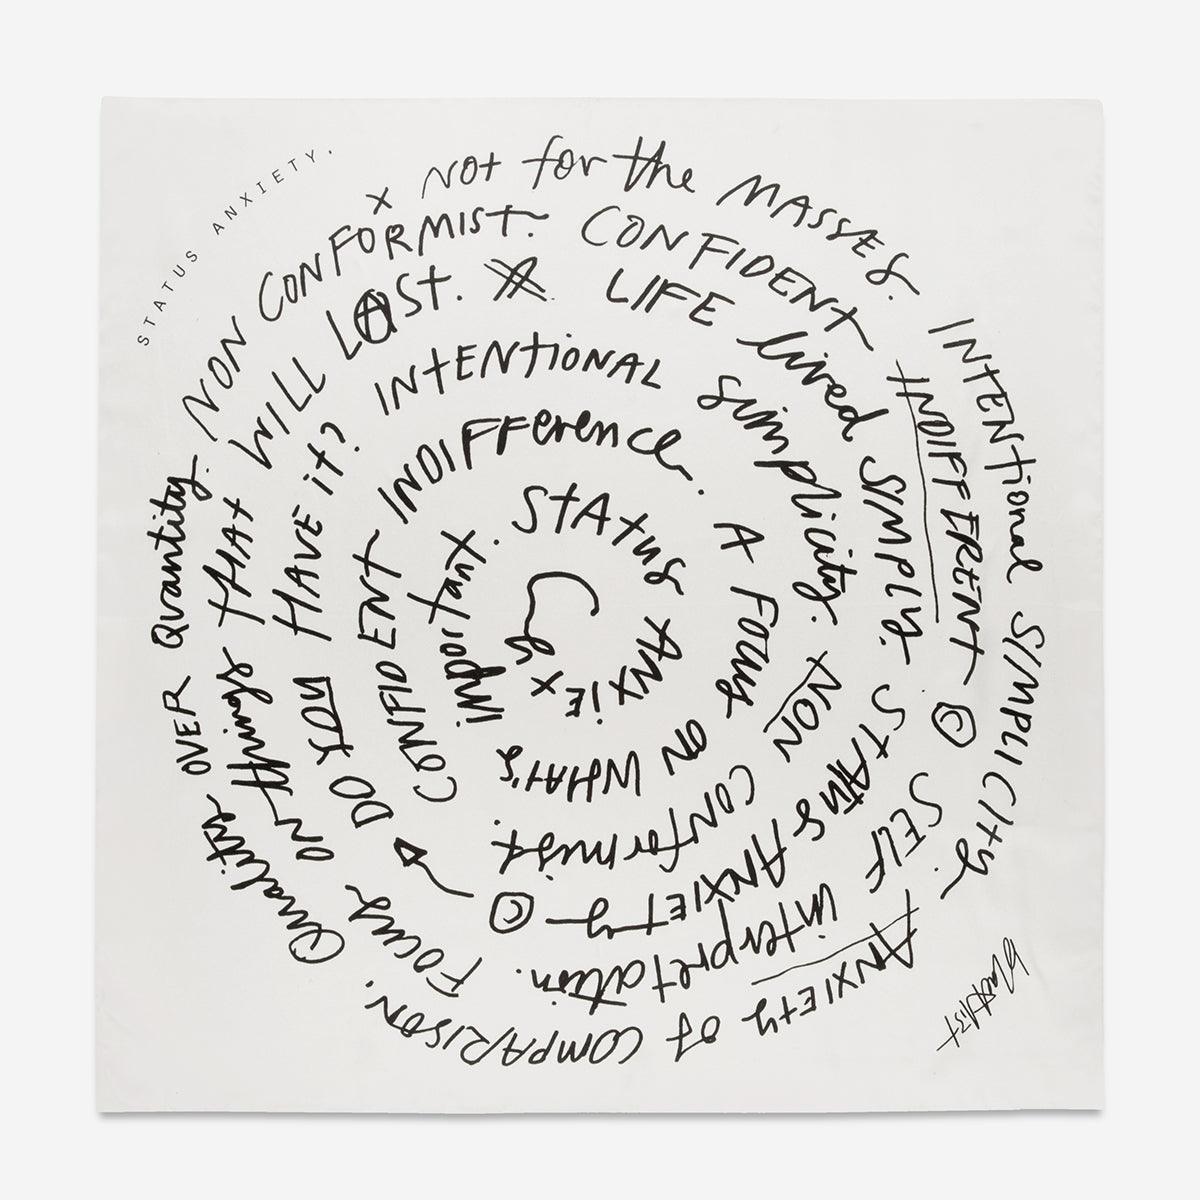 STATUS ANXIETY.
x NOT for the MASSES. INTENTIONAL SIMPLICITY. ANXIETY OF COMPARISON. Quality OVER Quantity.
NON CONFORMIST. CONFIDENT INDIFFERENT © SELF interpretation. Focus ON things that
WILL LAST. LIFE lived SIMPLY. STATUS ANXIETY © DO YOU HAVE it?
INTENTIONAL simplicity. NON CONformist.
CONFIDENT INDIFFerence. A FOCUS ON WHAT'S important.
STATUS ANXIE x